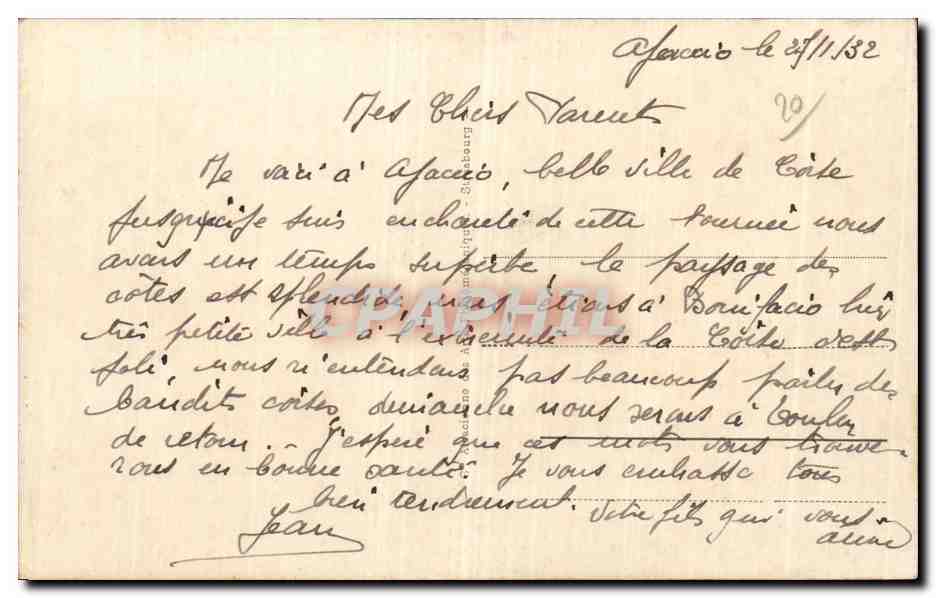 Ajaccio le 27/1/32
20/
Mes Chers Parents
Me voici à Ajaccio, belle ville de Corse
jusqu'ici je suis enchanté de cette tournée nous
avons un temps superbe, le paysage des
côtes est splendide, nous étions à Bonifacio hier
très petite ville à l'extrémité de la Corse c'est
joli, nous n'entendons pas beaucoup parler de
bandits corses, dimanche nous serons à Toulon
de retour. - J'espère que ces mots vous trouve-
rons en bonne santé. Je vous embrasse tous
bien tendrement. votre fils qui vous
aime
Jean
CPAPHIL
Strasbourg